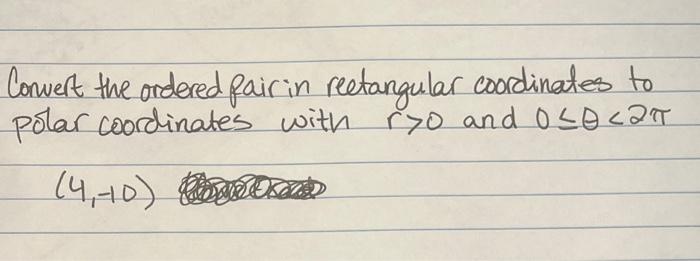 Convert the ordered pair in rectangular coordinates to
polar coordinates with r>0 and 0≤θ<2π
(4,-10)